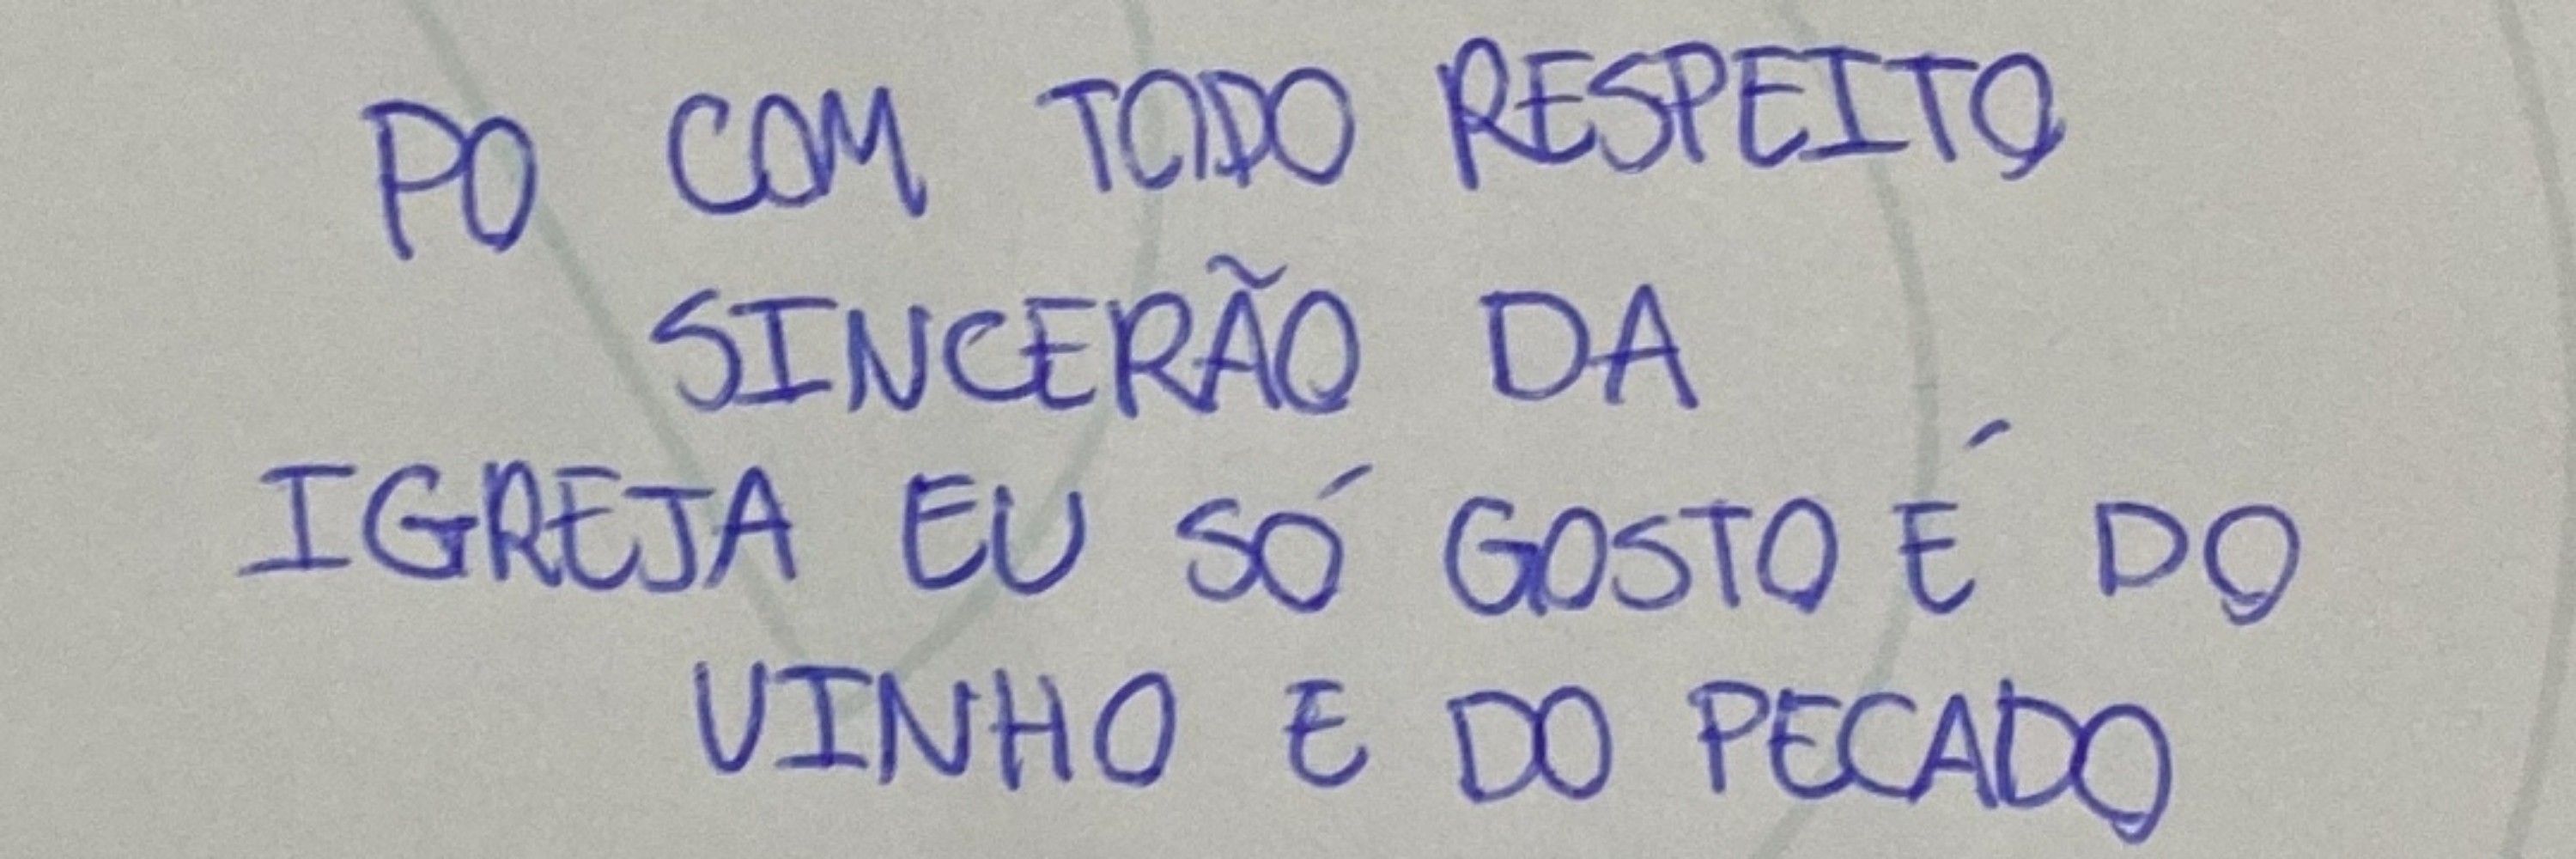 PO COM TODO RESPEITO
SINCERÃO DA
IGREJA EU SÓ GOSTO É DO
VINHO E DO PECADO